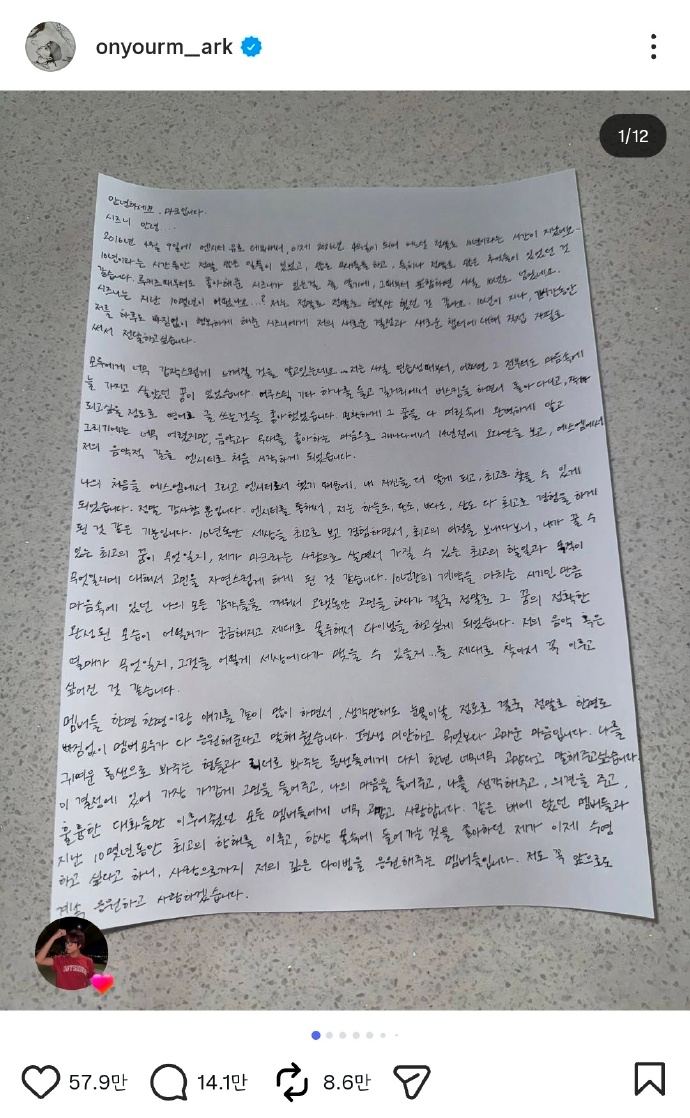 onyourm__ark
1/12
안녕하세요. 마크입니다.
시즈니 안녕...
2016년 4월 9일에 엔시티 유로 데뷔해서, 이제 2026년 4월이 되어 어느덧 정말로 10년이라는 시간이 지났네요.
10년이라는 시간동안 정말 많은 일들이 있었고, 많은 무대들을 하고, 특히나 정말로 많은 추억들이 있었던 것
같습니다. 루키즈때부터도 좋아해준 시즈니가 있는걸 잘 알기에, 그때부터 포함하면 사실 10년도 넘었네요.
시즈니는 지난 10몇년이 어땠나요...? 저는 정말로 정말로 행복만 했던 것 같아요. 10년이 지나, 그동안
저를 하루도 빠짐없이 행복하게 해준 시즈니에게 저의 새로운 결정과 새로운 챕터에 대해 직접 자필로
써서 전달하고싶습니다.
모두에게 너무 갑작스럽게 느껴질 것을 알고있는데요... 저는 사실 연습생때부터, 어쩌면 그 전부터도 마음속에
늘 가지고 살았던 꿈이 있었습니다. 어쿠스틱 기타 하나를 들고 길거리에서 버스킹을 하면서 돌아다니고,
되고싶을 정도로 영어로 글 쓰는것을 좋아했었습니다. 명확하게 그 꿈을 다 머릿속에 완벽하게 알고
그리기에는 너무 어렸지만, 음악과 무대를 좋아하는 마음으로 캐나다에서 14년전에 오디션을 보고, 에스엠에서
저의 음악적 길을 엔시티로 처음 시작하게 되었습니다.
나의 처음을 에스엠에서 그리고 엔시티로서 했기 때문에, 내 자신을 더 알게 되고, 최고로 찾을 수 있게
되었습니다. 정말 감사할 뿐입니다. 엔시티를 통해서, 저는 하늘도, 땅도, 바다도, 산도 다 최고로 경험을 하게
된 것 같은 기분입니다. 10년동안 세상을 최고로 보고 경험하면서, 최고의 여정을 보내다보니, 내가 꿀 수
있는 최고의 꿈이 무엇일지, 제가 마크라는 사람으로 살면서 가질 수 있는 최고의 할일과 목적이
무엇일지에 대해서 고민을 자연스럽게 하게 된 것 같습니다. 10년간의 계약을 마치는 시기인 만큼
마음속에 있던 나의 모든 감각들을 깨워서 오랫동안 고민을 하다가 결국 정말로 그 꿈의 정확한
완성된 모습이 어떨지가 궁금해지고 제대로 몰두해서 다이빙을 하고싶게 되었습니다. 저의 음악 혹은
열매가 무엇일지, 그것을 어떻게 세상에다가 맺을 수 있을지..를 제대로 찾아서 꼭 이루고
싶어진 것 같습니다.
멤버들 한명 한명이랑 얘기를 같이 많이 하면서, 생각만해도 눈물이날 정도로 결국 정말로 한명도
빠짐없이 멤버 모두가 다 응원해준다고 말해 줬습니다. 평생 미안하고 무엇보다 고마운 마음입니다. 나를
귀여운 동생으로 봐주는 형들과 리더로 봐주는 동생들에게 다시 한번 너무너무 고맙다고 말해주고싶습니다.
이 결정에 있어 가장 가깝게 고민을 들어주고, 나의 마음을 들어주고, 나를 생각해주고, 의견을 주고,
훌륭한 대화들만 이루어줬던 모든 멤버들에게 너무 고맙고 사랑합니다. 같은 배에 탔던 멤버들과
지난 10몇년동안 최고의 항해를 이루고, 항상 물속에 들어가는 것을 좋아하던 제가 이제 수영
하고 싶다고 하니, 사랑으로까지 저의 깊은 다이빙을 응원해주는 멤버들입니다. 저도 꼭 앞으로도
계속 응원하고 사랑하겠습니다.
57.9만 14.1만 8.6만